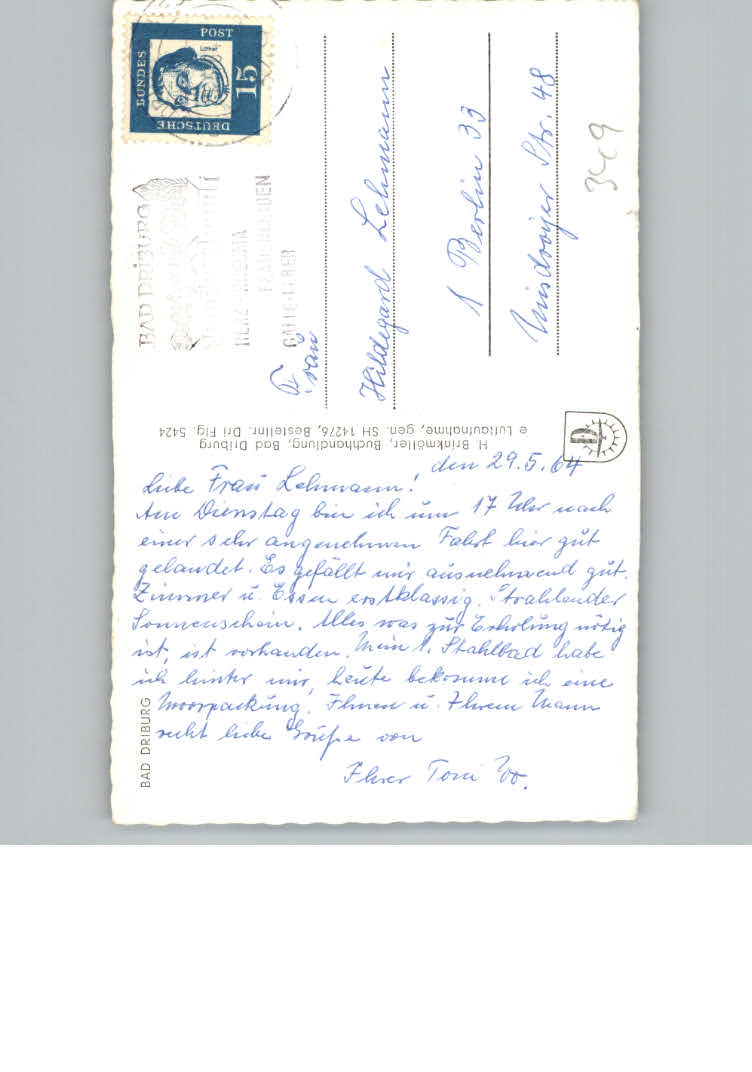 DEUTSCHE
BUNDES
POST
Luther
15
BAD DRIBURG
HERZ - RHEUMA
FRAUENLEIDEN
GALLE-LEBER
Frau
Hildegard Lehmann
1 Berlin 33
Misdroyer Str. 48
349
H. Brinkmöller, Buchhandlung, Bad Driburg
e Luftaufnahme, gen. SH 14276, Bestellnr. Dri Flg. 5424
D
den 29.5.64
Liebe Frau Lehmann!
Am Dienstag bin ich um 17 Uhr nach
einer sehr angenehmen Fahrt hier gut
gelandet. Es gefällt mir ausnehmend gut.
Zimmer u. Essen erstklassig. Strahlender
Sonnenschein. Alles was zur Erholung nötig
ist, ist vorhanden. Mein 1. Stahlbad habe
ich hinter mir, heute bekomme ich eine
Moorpackung. Ihnen u. Ihrem Mann
recht liebe Grüße von
Ihrer Toni
BAD DRIBURG